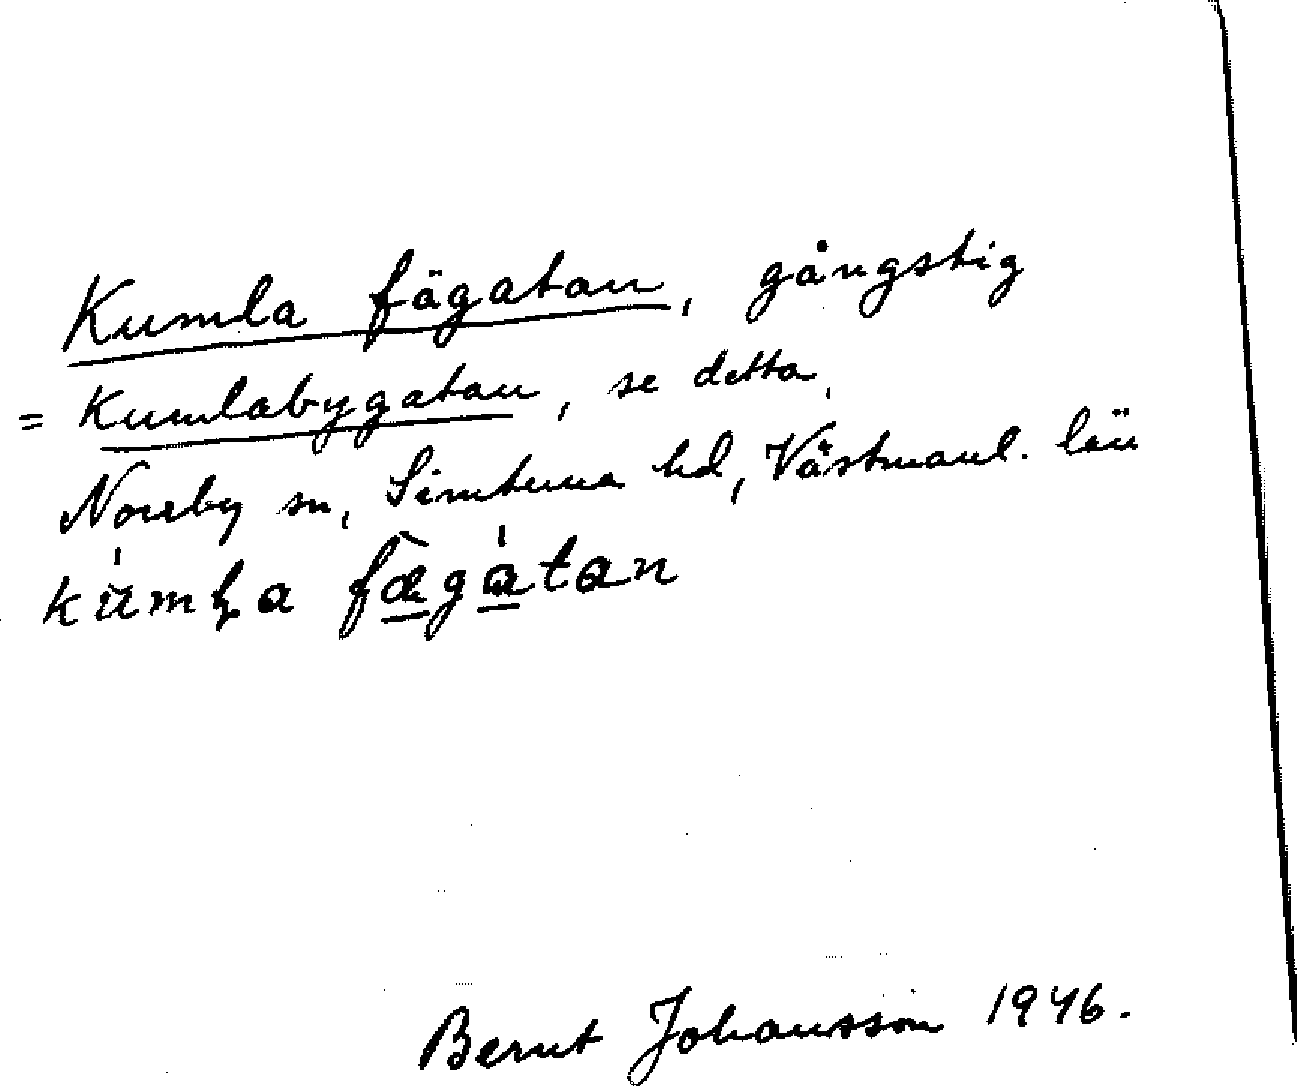 Kumla fägatan, gångstig
= Kumlabygatan, se detta,
Norrby sn, Simtuna hd, Västmanl. län
fæ̀gátan
Bernt Johansson 1946.